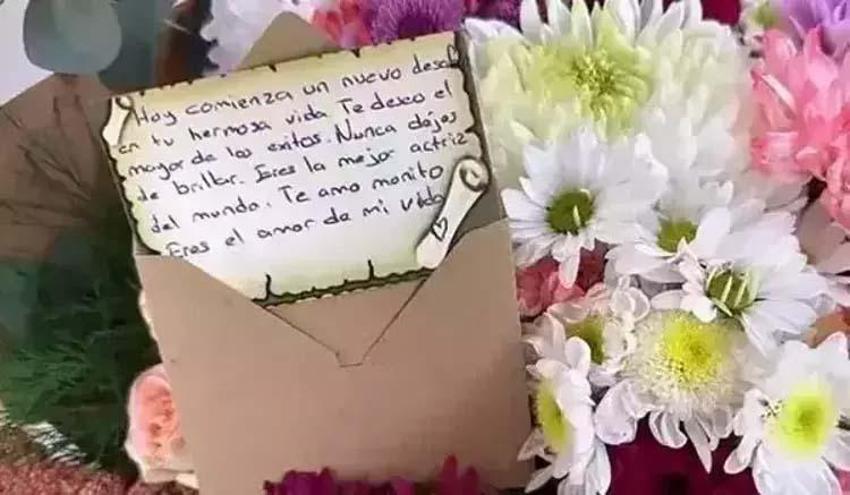 Hoy comienza un nuevo desa
en tu hermosa vida. Te deseo el
mayor de los exitos. Nunca dejes
de brillar. Eres la mejor actriz
del mundo. Te amo monito
Eres el amor de mi vida